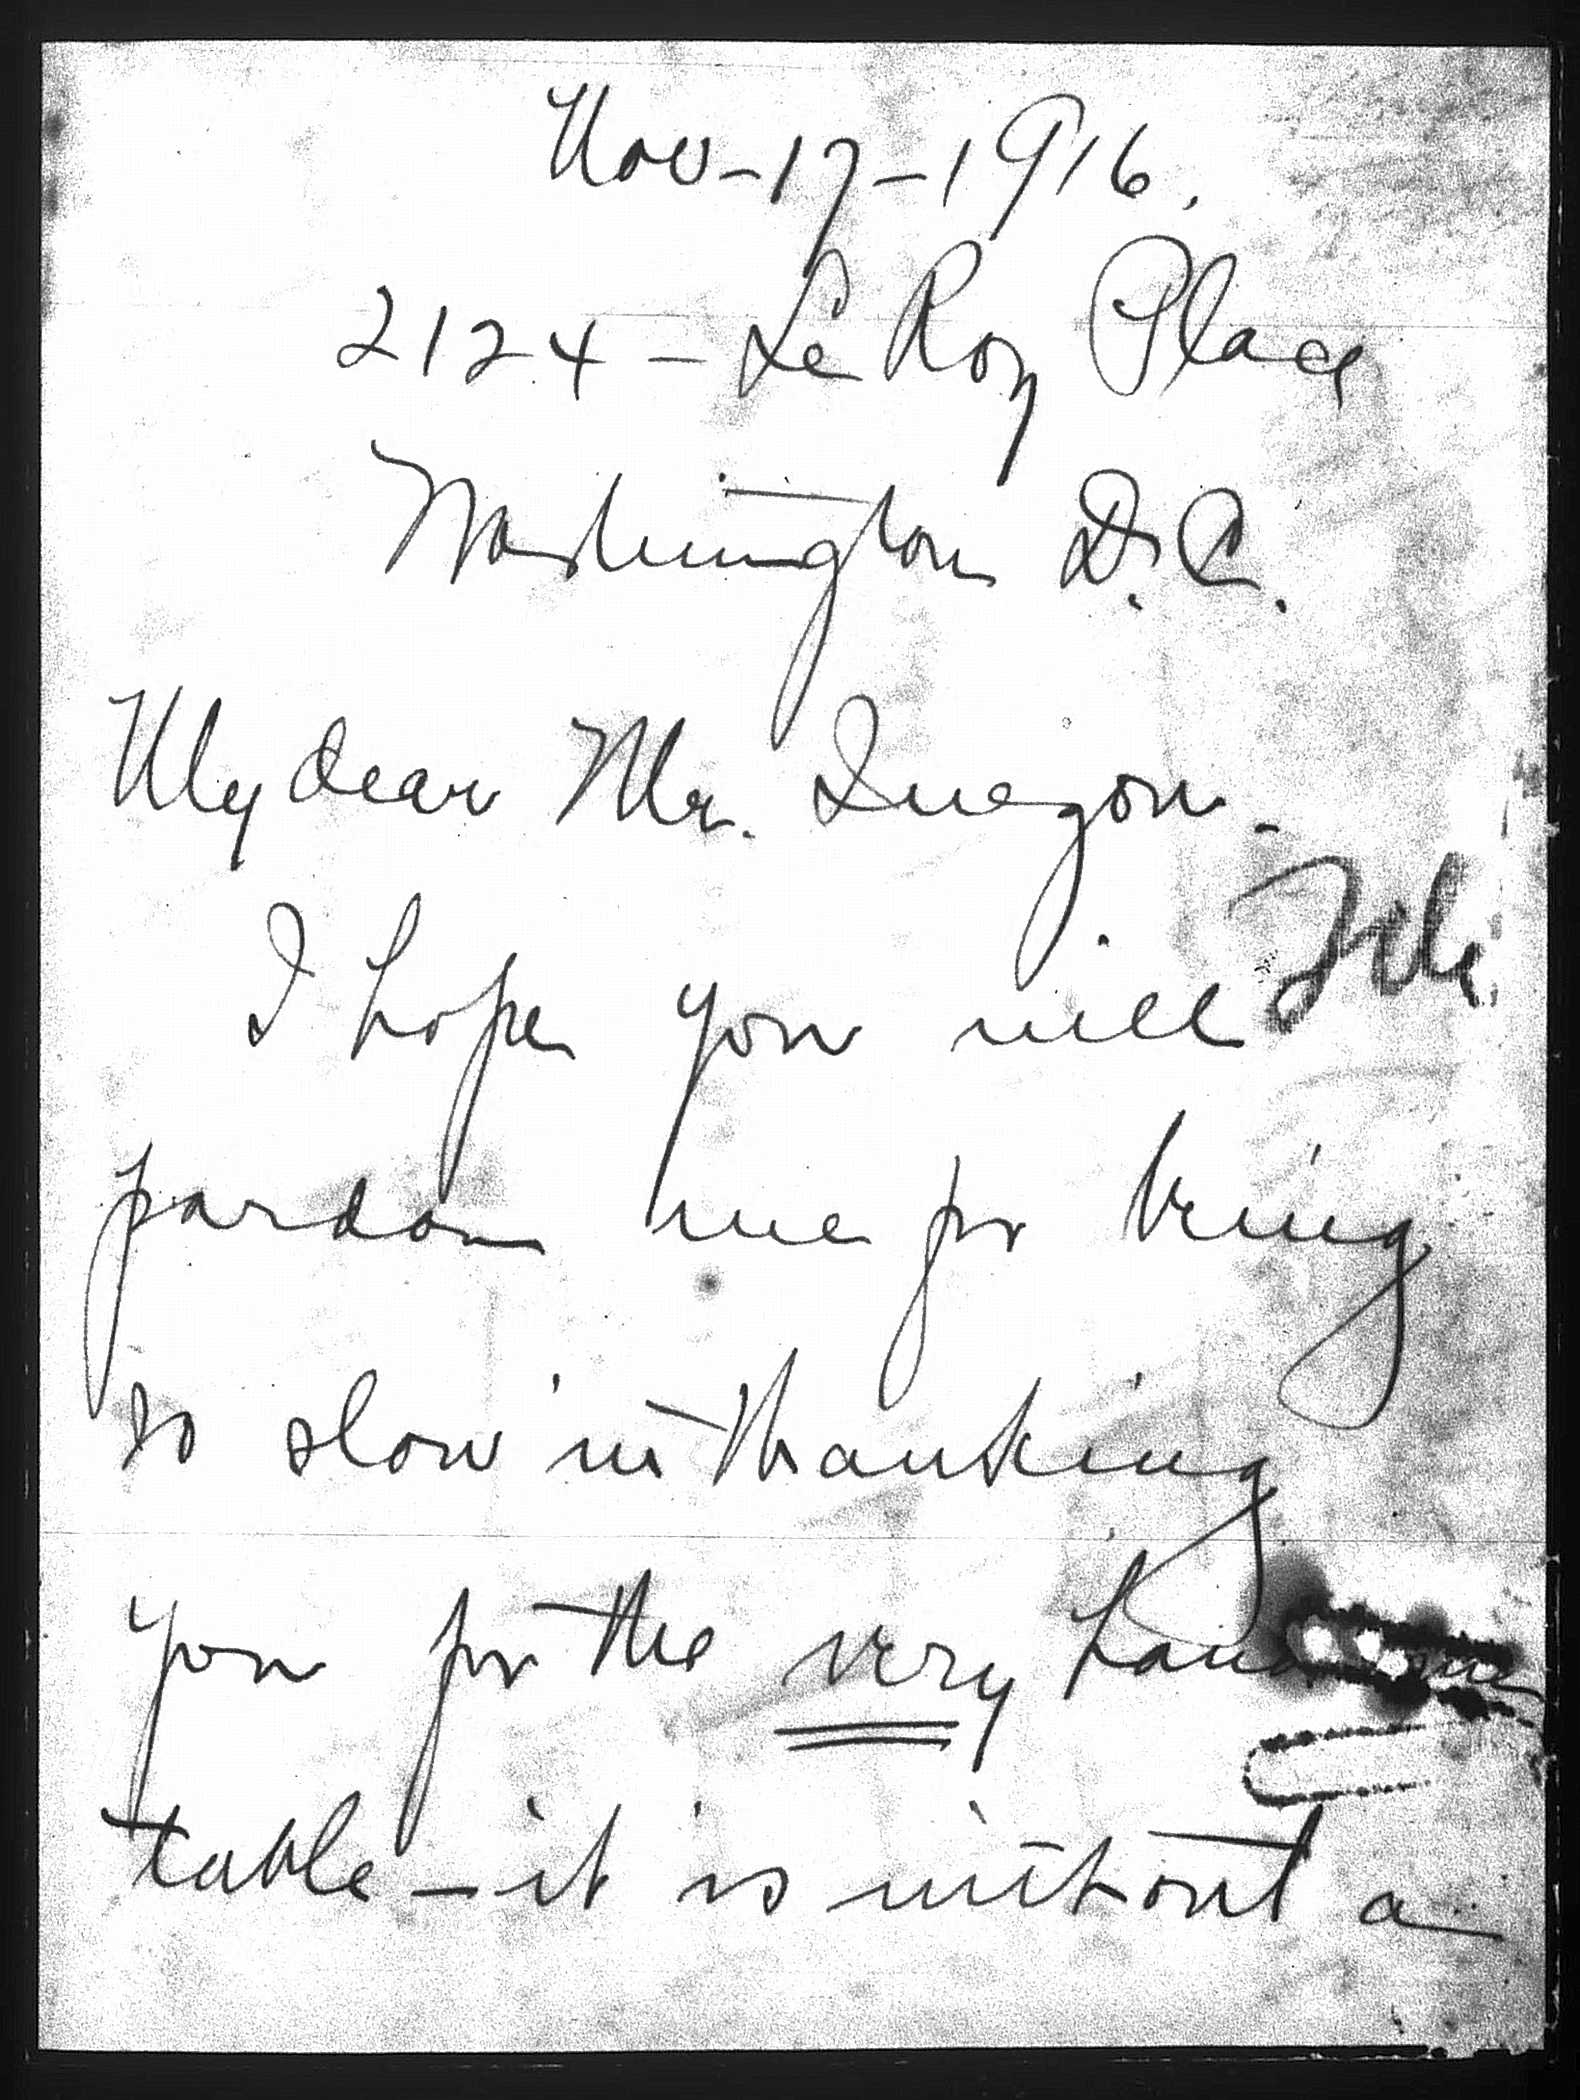 Nov-17-1916.
2124 - Le Roy Place
Washington D.C.
My dear Mr. Quezon -
I hope you will
pardon me for being
so slow in thanking
you for the very
table - it is without a